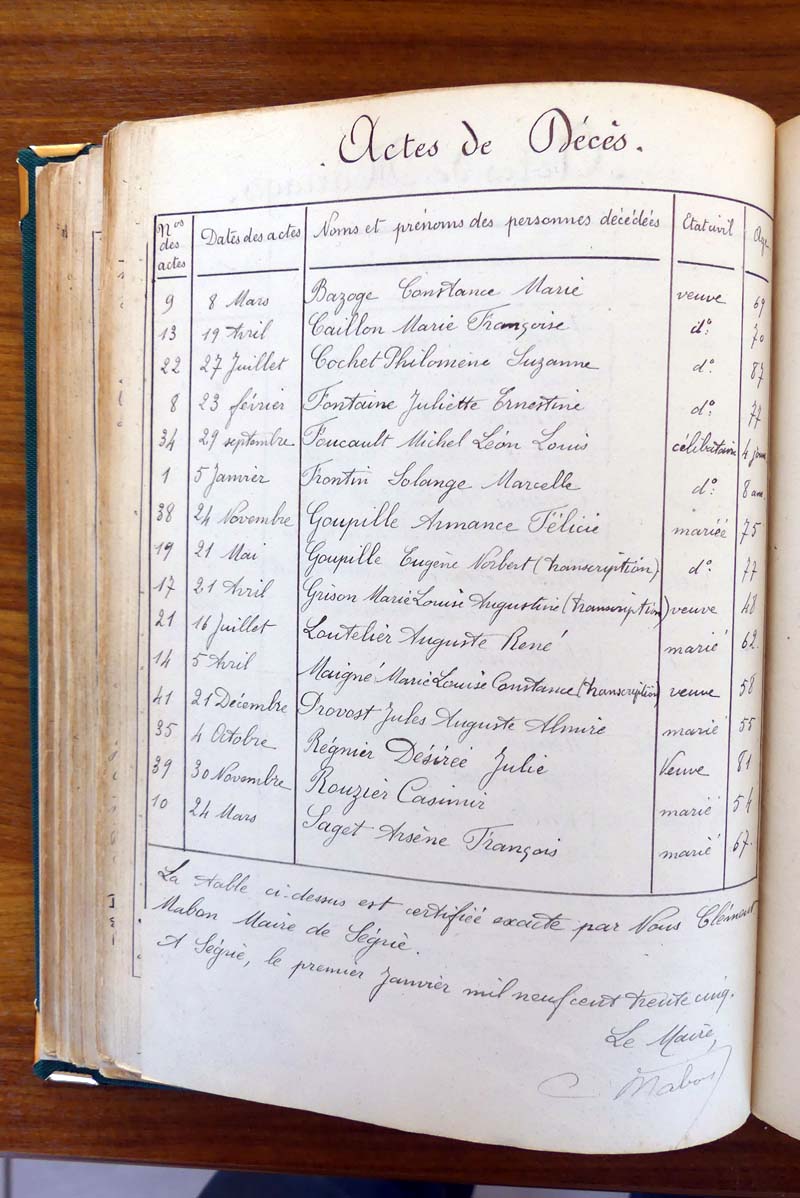 Actes de Décès.
Nos des actes Dates des actes Noms et prénoms des personnes décédées Etat civil Age
9 8 Mars Bazoge Constance Marie veuve 69
13 19 Avril Caillon Marie Françoise do. 70
22 27 Juillet Cochet Philomène Suzanne do. 87
8 23 février Fontaine Juliette Ernestine do. 77
34 29 septembre Foucault Michel Léon Louis célibataire 4 jours
1 5 Janvier Frontin Solange Marcelle do. 8 ans
38 24 Novembre Goupille Armance Félicie mariée 75
19 21 Mai Goupille Eugène Norbert (transcription) do. 77
17 21 Avril Grison Marie Louise Augustine (transcription) veuve 48
21 16 Juillet Loutelier Auguste René marié 62.
14 5 Avril Maigné Marie Louise Constance (transcription) veuve 58
41 21 Décembre Provost Jules Auguste Almire marié 55
35 4 Octobre Régnier Désirée Julie Veuve 81
39 30 Novembre Rouzier Casimir marié 54
10 24 Mars Saget Arsène François marié 67.
La table ci-dessus est certifiée exacte par Nous Clément
Mabon Maire de Ségrie.
A Ségrie, le premier Janvier mil neuf cent trente cinq.
Le Maire,
C Mabon